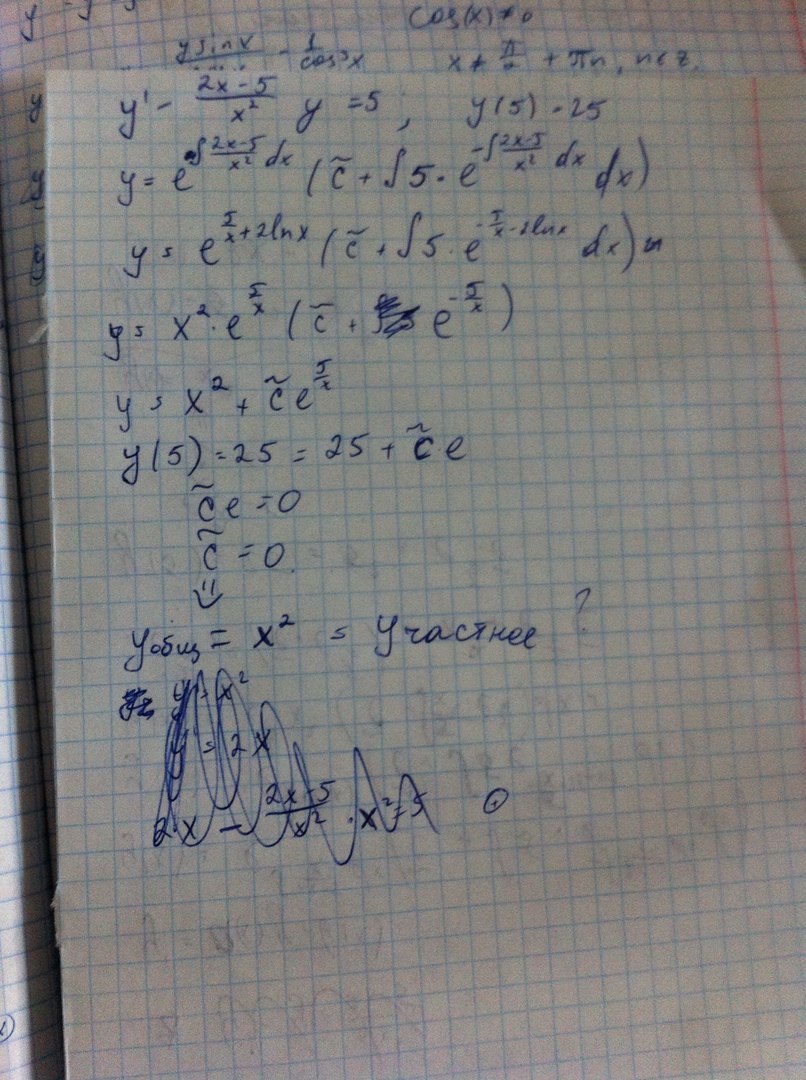 cos(x) ≠ 0
y sin x - 1/cos³x x ≠ π/2 + πn, n∈Z.
y' - (2x-5)/x² y = 5 ; y(5) = 25
y = e^(∫(2x-5)/x² dx) (c̃ + ∫5·e^(-∫(2x-5)/x² dx) dx)
y = e^(5/x+2lnx) (c̃ + ∫5·e^(-5/x-2lnx) dx) =
y = x²·e^(5/x) (c̃ + e^(-5/x))
y = x² + c̃e^(5/x)
y(5) = 25 = 25 + c̃e
c̃e = 0
c̃ = 0
y общ = x² = y частное ?
y = x²
y' = 2x
2·x - (2x-5)/x² · x² = 5